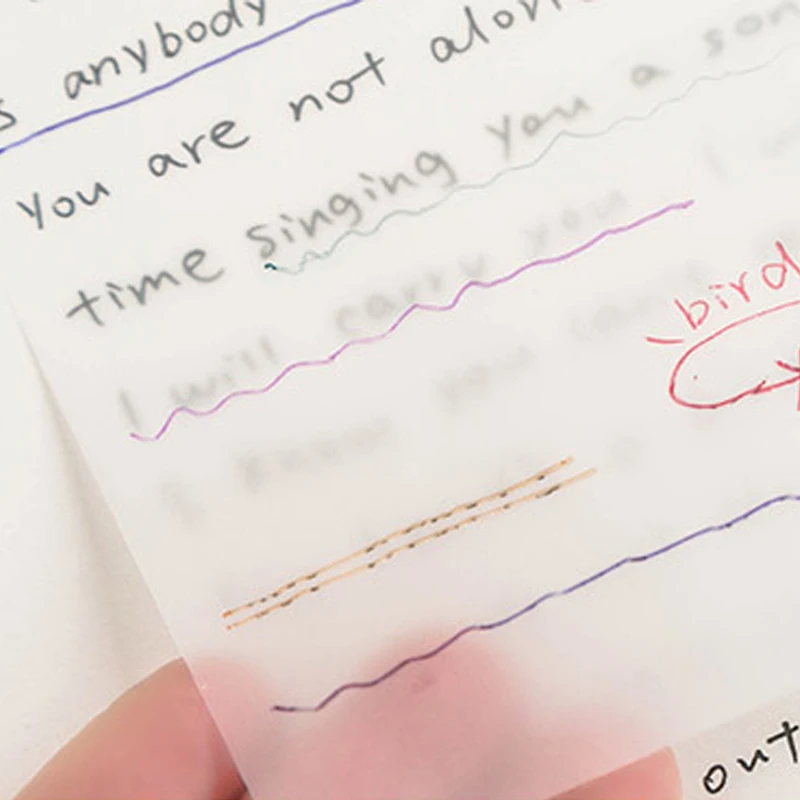 s anybody
You are not alon
time singing you a son
I will carry you
bird
I know you can't
out